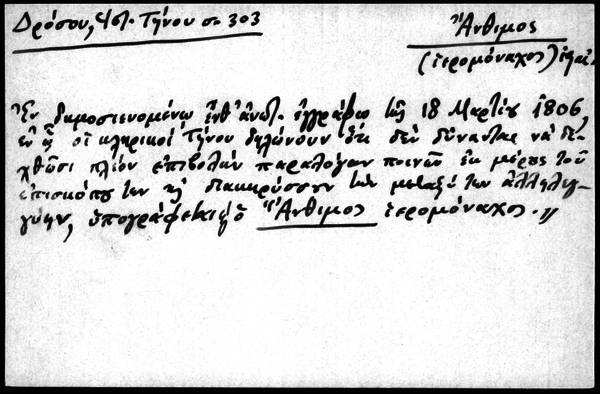 Δρόσου, Ἱστ. Τήνου σ. 303
Ἄνθιμος
(ἱερομόναχος)
Ἐν δημοσιευομένῳ ἔνθ' ἀνωτ. ἐγγράφῳ τῆς 18 Μαρτίου 1806,
ἐν ᾧ οἱ κληρικοί Τήνου δηλώνουν ὅτι δέν δύνανται νά δε-
χθῶσι πλέον ἐπιβολήν παραλόγων ποινῶν ἐκ μέρους τοῦ
ἐπισκόπου των καί διακηρύσσουν τήν μεταξύ των ἀλληλεγ-
γύην, ὑπογράφεται καί ὁ Ἄνθιμος ἱερομόναχος.